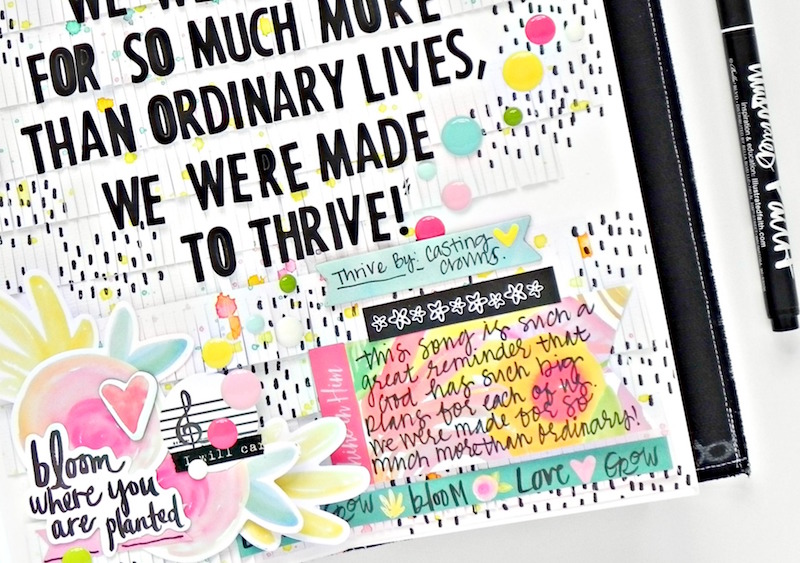 WE WE
FOR SO MUCH MORE
THAN ORDINARY LIVES,
WE WERE MADE
TO THRIVE!"
Thrive By: Casting
crowns.
this song is such a
great reminder that
God has such big
plans for each of us.
We were made for so
much more than ordinary!
in Him
GROW bLOOM LOVE GROW
I will
bloom
where you
are planted
illustrated Faith
inspiration & education: illustratedfaith.com